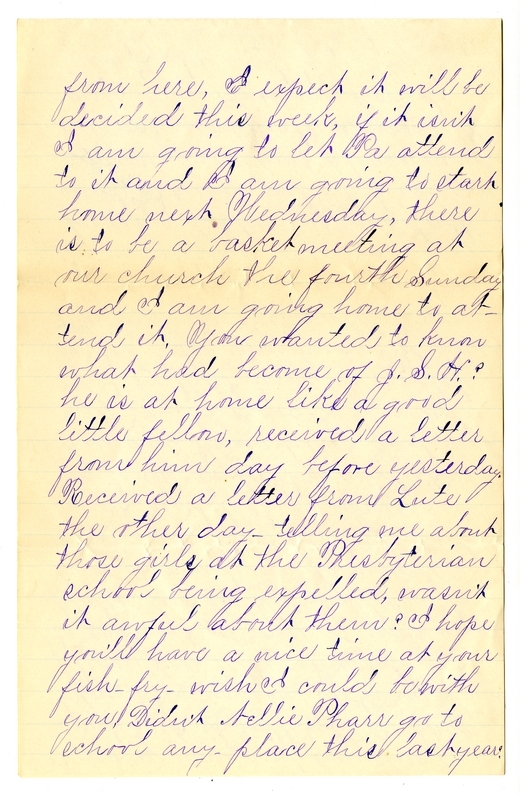 from here, I expect it will be
decided this week, if it isn't
I am going to let Pa attend
to it and I am going to start
home next Wednesday, there
is to be a basket meeting at
our church the fourth Sunday
and I am going home to at-
tend it. You wanted to know
what had become of J. S. H.?
he is at home like a good
little fellow, received a letter
from him day before yesterday.
Received a letter from Lute
the other day - telling me about
those girls at the Presbyterian
school being expelled, wasn't
it awful about them? I hope
you'll have a nice time at your
fish-fry - wish I could be with
you, Didn't Nellie Pharr go to
school any-place this last year?